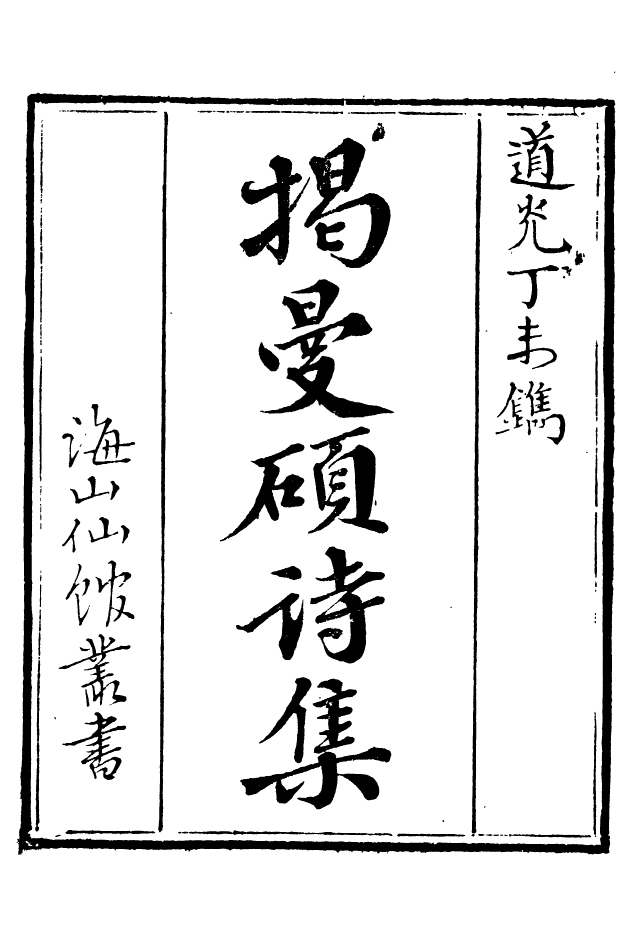 道光丁未鐫
揭曼碩詩集
海山仙館叢書